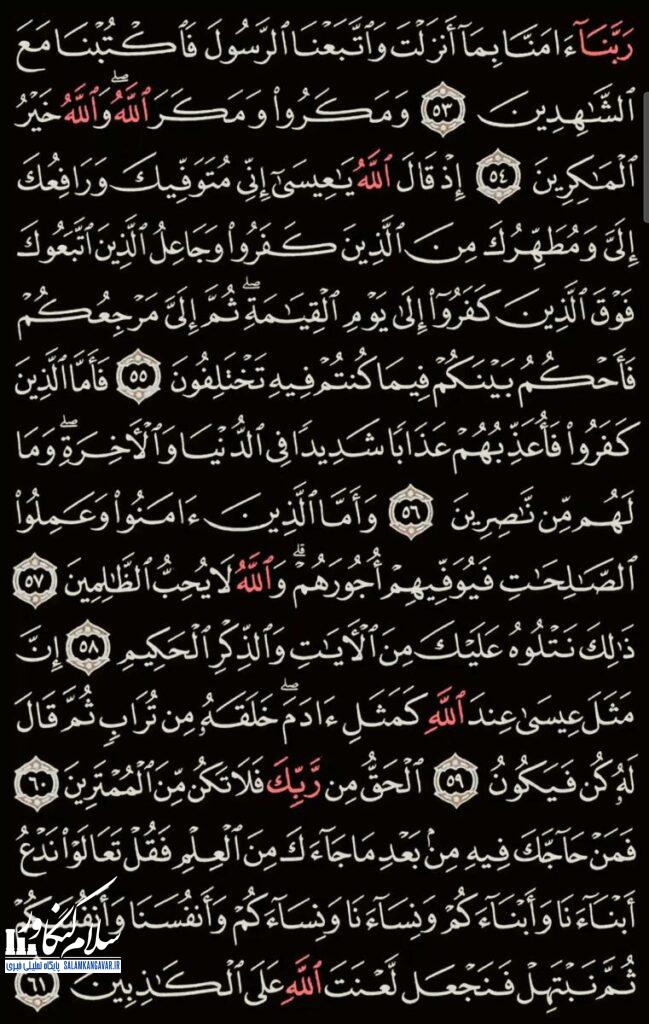 رَبَّنَآ ءَامَنَّا بِمَآ أَنزَلۡتَ وَٱتَّبَعۡنَا ٱلرَّسُولَ فَٱكۡتُبۡنَا مَعَ
ٱلشَّٰهِدِينَ ٥٣ وَمَكَرُواْ وَمَكَرَ ٱللَّهُۖ وَٱللَّهُ خَيۡرُ
ٱلۡمَٰكِرِينَ ٥٤ إِذۡ قَالَ ٱللَّهُ يَٰعِيسَىٰٓ إِنِّي مُتَوَفِّيكَ وَرَافِعُكَ
إِلَيَّ وَمُطَهِّرُكَ مِنَ ٱلَّذِينَ كَفَرُواْ وَجَاعِلُ ٱلَّذِينَ ٱتَّبَعُوكَ
فَوۡقَ ٱلَّذِينَ كَفَرُوٓاْ إِلَىٰ يَوۡمِ ٱلۡقِيَٰمَةِۖ ثُمَّ إِلَيَّ مَرۡجِعُكُمۡ
فَأَحۡكُمُ بَيۡنَكُمۡ فِيمَا كُنتُمۡ فِيهِ تَخۡتَلِفُونَ ٥٥ فَأَمَّا ٱلَّذِينَ
كَفَرُواْ فَأُعَذِّبُهُمۡ عَذَابٗا شَدِيدٗا فِي ٱلدُّنۡيَا وَٱلۡأٓخِرَةِۖ وَمَا
لَهُم مِّن نَّٰصِرِينَ ٥٦ وَأَمَّا ٱلَّذِينَ ءَامَنُواْ وَعَمِلُواْ
ٱلصَّٰلِحَٰتِ فَيُوَفِّيهِمۡ أُجُورَهُمۡۗ وَٱللَّهُ لَا يُحِبُّ ٱلظَّٰلِمِينَ ٥٧
ذَٰلِكَ نَتۡلُوهُ عَلَيۡكَ مِنَ ٱلۡأٓيَٰتِ وَٱلذِّكۡرِ ٱلۡحَكِيمِ ٥٨ إِنَّ
مَثَلَ عِيسَىٰ عِندَ ٱللَّهِ كَمَثَلِ ءَادَمَۖ خَلَقَهُۥ مِن تُرَابٖ ثُمَّ قَالَ
لَهُۥ كُن فَيَكُونُ ٥٩ ٱلۡحَقُّ مِن رَّبِّكَ فَلَا تَكُن مِّنَ ٱلۡمُمۡتَرِينَ ٦٠
فَمَنۡ حَآجَّكَ فِيهِ مِنۢ بَعۡدِ مَا جَآءَكَ مِنَ ٱلۡعِلۡمِ فَقُلۡ تَعَالَوۡاْ نَدۡعُ
أَبۡنَآءَنَا وَأَبۡنَآءَكُمۡ وَنِسَآءَنَا وَنِسَآءَكُمۡ وَأَنفُسَنَا وَأَنفُسَكُمۡ
ثُمَّ نَبۡتَهِلۡ فَنَجۡعَل لَّعۡنَتَ ٱللَّهِ عَلَى ٱلۡكَٰذِبِينَ ٦١
سلام کنگاور
پایگاه تحلیلی خبری SALAMKANGAVAR.IR